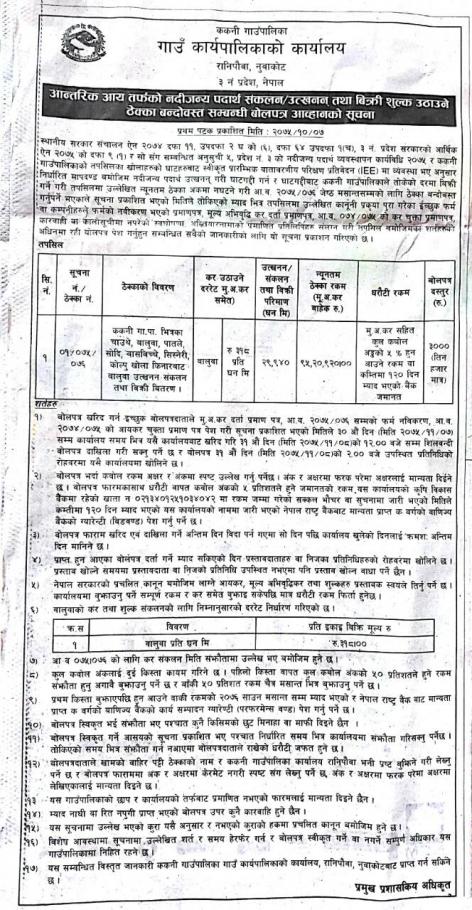 ककनी गाउँपालिका
गाउँ कार्यपालिकाको कार्यालय
रानिपौवा, नुवाकोट
३ नं प्रदेश, नेपाल
आन्तरिक आय तर्फको नदीजन्य पदार्थ संकलन/उत्खनन् तथा बिक्री शुल्क उठाउने
ठेक्का बन्दोवस्त सम्बन्धी बोलपत्र आव्हानको सूचना
प्रथम पटक प्रकाशित मिति : २०७५/१०/०७
स्थानीय सरकार संचालन ऐन २०७४ दफा ११, उपदफा २ घ को (६), दफा ६४ उपदफा १(च), ३ नं. प्रदेश सरकारको आर्थिक
ऐन २०७५ को दफा ९ (१) र सो संग सम्बन्धित अनुसुची ५, प्रदेश नं. ३ को नदीजन्य पदार्थ व्यवस्थापन कार्यविधि २०७५ र ककनी
तपसिल
सि. नं.
सूचना नं./ ठेक्का नं.
ठेक्काको विवरण
कर उठाउने दररेट मू.अ.कर समेत)
उत्खनन/ संकलन तथा बिक्री परिमाण (घन मि)
न्यूनतम ठेक्का रकम (मू.अ.कर बाहेक रु.)
धरौटी रकम
बोलपत्र दस्तुर (रु.)
१
०१/०७५/ ०७६
ककनी गा.पा. भित्रका चाउथे, बालुवा, पातले, सोदि, बासबिच्चे, सिस्नेरी, कोल्पु खोला किनारबाट बालुवा उत्खनन संकलन तथा बिक्री बितरण ।
बालुवा
रु ३१८ प्रति घन मि
२९,९४०
९५,२०,९२०।००
मू.अ.कर सहित कुल कबोल अङ्कको ५ % हुन आउने रकम वा कम्तिमा १२० दिन म्याद भएको बैंक जमानत
३००० (तिन हजार मात्र)
शर्तहरु
१) बोलपत्र खरिद गर्न इच्छुक बोलपत्रदाताले मू.अ.कर दर्ता प्रमाण पत्र, आ.व. २०७५/०७६ सम्मको फर्म नविकरण, आ.व.
२०७४/०७५ को आयकर चुक्ता प्रमाण पत्र पेश गरी सूचना प्रकाशित भएको मितिले ३० औं दिन (मिति २०७५/११/०७)
सम्म कार्यालय समय भित्र यसै कार्यालयबाट खरिद गरि ३१ औं दिन (मिति २०७५/११/०८)को १२.०० बजे सम्म शिलबन्दी
बोलपत्र दाखिला गरी सक्नु पर्ने छ र बोलपत्र ३१ औं दिन (मिति २०७५/११/०८)को २.०० बजे उपस्थित प्रतिनिधिको
रोहवरमा यसै कार्यालयमा खोलिने छ ।
२) बोलपत्र भर्दा कबोल रकम अक्षर र अंकमा स्पष्ट उल्लेख गर्नु पर्नेछ । अंक र अक्षरमा फरक परेमा अक्षरलाई मान्यता दिईने
छ । बोलपत्र फारमकासाथ धरौटी बापत कबोल अंकको ५ प्रतिशतले हुने जमानतको रकम, यस कार्यालयको कृषि विकास
बैंकमा रहेको खाता न ०२१३४०१२५१०३४०४२ मा रकम जम्मा गरेको सक्कल भौचर वा सूचनामा जारी भएको मितिले
कम्तीमा १२० दिन म्याद भएको यस कार्यालयको नाममा जारी भएको नेपाल राष्ट्र बैंकबाट मान्यता प्राप्त क वर्गको वाणिज्य
बैंकको ग्यारेन्टी (बिडबण्ड) पेश गर्नु पर्ने छ ।
३) बोलपत्र फाराम खरिद एवं दाखिला गर्ने अन्तिम दिन विदा पर्न गएमा सो दिन पछि कार्यालय खुलेको दिनलाई क्रमश: अन्तिम
दिन मानिने छ ।
४) प्राप्त हुन आएका बोलपत्र दर्ता गर्ने म्याद सकिएको दिन प्रस्तावदाताहरु वा निजका प्रतिनिधिहरुको रोहवरमा खोलिने छ ।
प्रस्ताव खोल्ने समयमा प्रस्तावदाता वा निजको प्रतिनिधि उपस्थित नभएमा पनि प्रस्ताव खोल्न बाधा पर्ने छैन ।
५) नेपाल सरकारको प्रचलित कानून बमोजिम लाग्ने आयकर, मूल्य अभिवृद्धिकर तथा शुल्कहरु प्रस्तावक स्वयंले तिर्नु पर्ने छ ।
कार्यालयमा बुझाउनु पर्ने सम्पूर्ण रकम र कर समेत बुझाइ सकेपछि मात्र धरौटी रकम फिर्ता हुनेछ ।
६) बालुवाको कर तथा शुल्क संकलनको लागि निम्नानुसारको दररेट निर्धारण गरिएको छ ।
क्र.स
विवरण
प्रति इकाइ बिक्रि मूल्य रु
१
बालुवा प्रति घन मि
रु.३१८।००
७) आ व ०७५।०७६ को लागि कर संकलन मिति संझौतामा उल्लेख भए बमोजिम हुने छ ।
८) कूल कबोल अंकलाई दुई किस्ता कायम गरिने छ । पहिलो किस्ता वापत कुल कबोल अंकको ५० प्रतिशतले हुने रकम
संझौता हुनु अगावै बुझाउनु पर्ने छ र बाँकी ५० प्रतिशत रकम चैत्र मसान्त भित्र बुझाउनु पर्ने छ ।
९) प्रथम किस्ता बुझाएपछि हुन आउने बाकी रकमको २०७६ साउन मसान्त सम्म म्याद भएको र नेपाल राष्ट्र बैंक बाट मान्यता
प्राप्त क वर्गको वाणिज्य बैंकको कार्य सम्पादन ग्यारेन्टी (परफरमेन्स वण्ड) पेश गर्नु पर्ने छ ।
१०) बोलपत्र स्विकृत भई संझौता भए पश्चात कुनै किसिमको छुट मिनाहा वा माफी दिईने छैन ।
११) बोलपत्र स्विकृत गर्ने आसयको सूचना प्रकाशित भए पश्चात निर्धारित समय भित्र कार्यालयमा संझौता गरिसक्नु पर्नेछ ।
तोकिएको समय भित्र संझौता गर्न नआएमा बोलपत्रदाताले राखेको धरौटी जफत हुने छ ।
१२) बोलपत्रदाताले खामको बाहिर पट्टी ठेक्काको नाम र ककनी गाउँपालिका कार्यालय रानिपौवा भनी प्रष्ट बुझिने गरी लेख्नु
पर्ने छ र बोलपत्र फाराममा अंक र अक्षरमा केरमेट नगरी स्पष्ट संग लेख्नु पर्ने छ, अंक र अक्षरमा फरक परेमा अक्षरमा
लेखिएकालाई मान्यता दिइने छ ।
१३ यस गाउँपालिकाको छाप र कार्यालयको तर्फबाट प्रमाणित नभएको फारमलाई मान्यता दिइने छैन ।
१४) म्याद नाघी वा रित नपुगी प्राप्त भएको बोलपत्र उपर कुनै कारवाहि हुने छैन ।
१५) यस सूचनामा उल्लेख भएको कुरा यसै अनुसार र नभएको कुराको हकमा प्रचलित कानून बमोजिम हुने छ ।
१६) बिशेष आवस्थामा सूचनामा उल्लेखित शर्त र समय हेरफेर गर्न र बोलपत्र स्वीकृत गर्ने वा नगर्ने सम्पूर्ण अधिकार यस
गाउँपालिकामा निहित रहने छ ।
१७) यस सम्बन्धि विस्तृत जानकारी ककनी गाउँपालिका गाउँ कार्यपालिकाको कार्यालय, रानिपौवा, नुवाकोटबाट प्राप्त गर्न सकिने
छ ।
प्रमुख प्रशासकिय अधिकृत